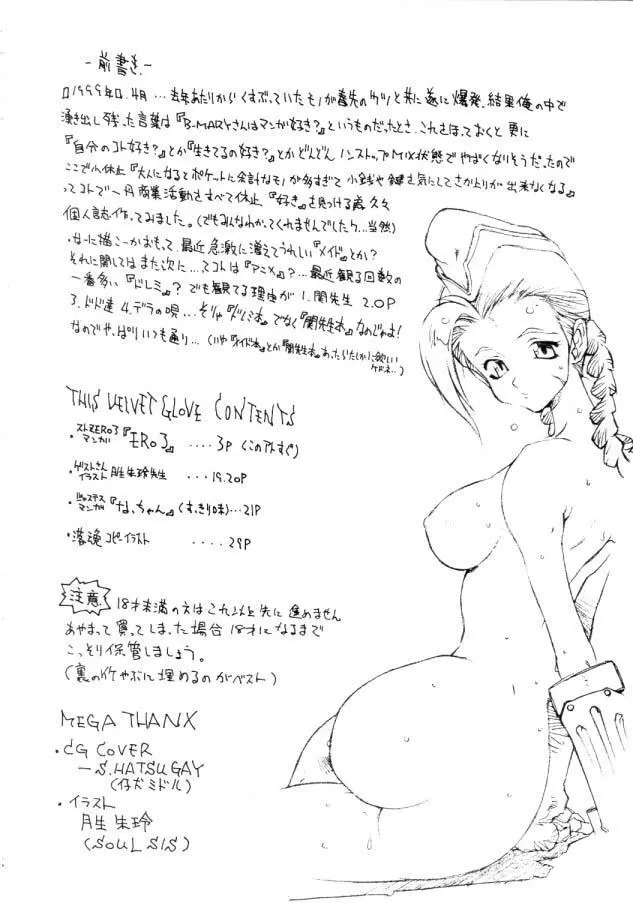 -前書き-
□1999年□.4月...去年あたりからくすぶっていたモノが春先のケツと共に遂に爆発.結果俺の中で
湧き出し残った言葉は『B-MARYさんはマンガ好き?』というものだったとき、これをほっておくと更に
『自分のコト好き?』とか『生きてるの好き?』とかどんどんノンストップMIX状態でやばくなりそうだったので
ここで小休止『大人になるとポケットに余計なモノが多すぎて小銭や鍵を気にしてさか上りが出来なくなる』
ってコトで一月商業活動をすべて休止『好き』を見つける為久々
個人誌イケってみました。(でもみんなわかってくれませんでしたケ...当然)
なーに描こーかおもって、最近急激に増えてうれしい『メイド』とか?
それに関してはまた次に...てコトは『アニメ』?...最近観る回数の
一番多い『ドレミ』? でも観てる理由が 1.関先生 2.OP
3.ドド達 4.デラの唄...そりゃ『ドレミ本』でなく『関先生本』なのじゃよ!
なのでやっぱりいつも通り...(いや『メイド本』とか『関先生本』あったらたしかに欲しい
ケドネ..)
THIS VELVET GLOVE CONTENTS
・ストZERO3マンガ『モロ3』....3P(このアトすぐ)
・ゲストさんイラスト 月生朱玲先生 ...19.20P
・ジャスティスマンガ『な、ちゃん』(すっきり味)...21P
・落魂コピーイラスト ....29P
注意
18才未満の方はこれ以上先に進めません
あやまって買ってしまった場合18才になるまで
こっそり保管しましょう。
(裏のイケやぶに埋めるのがベスト)
MEGA THANX
・CG COVER
―S.HATSUGAY
(仔犬ミドル)
・イラスト
月生朱玲
(SOUL SIS)